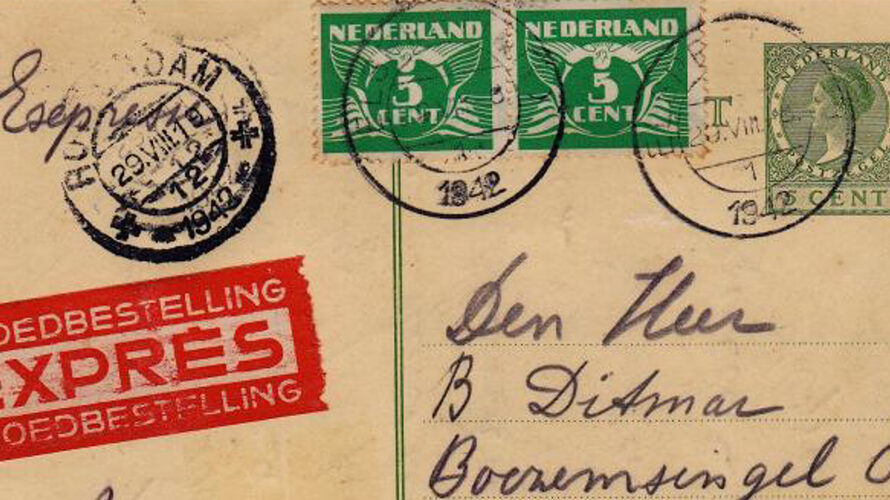 Esepresse
ROTTERDAM
29.VIII.19
12
1942
NEDERLAND
5
CENT
NEDERLAND
5
CENT
1942
1942
NEDERLAND
POSTZEGEL
5 CENT
T
SPOEDBESTELLING
EXPRÈS
SPOEDBESTELLING
Den Heer
B Ditmar
Boezemsingel